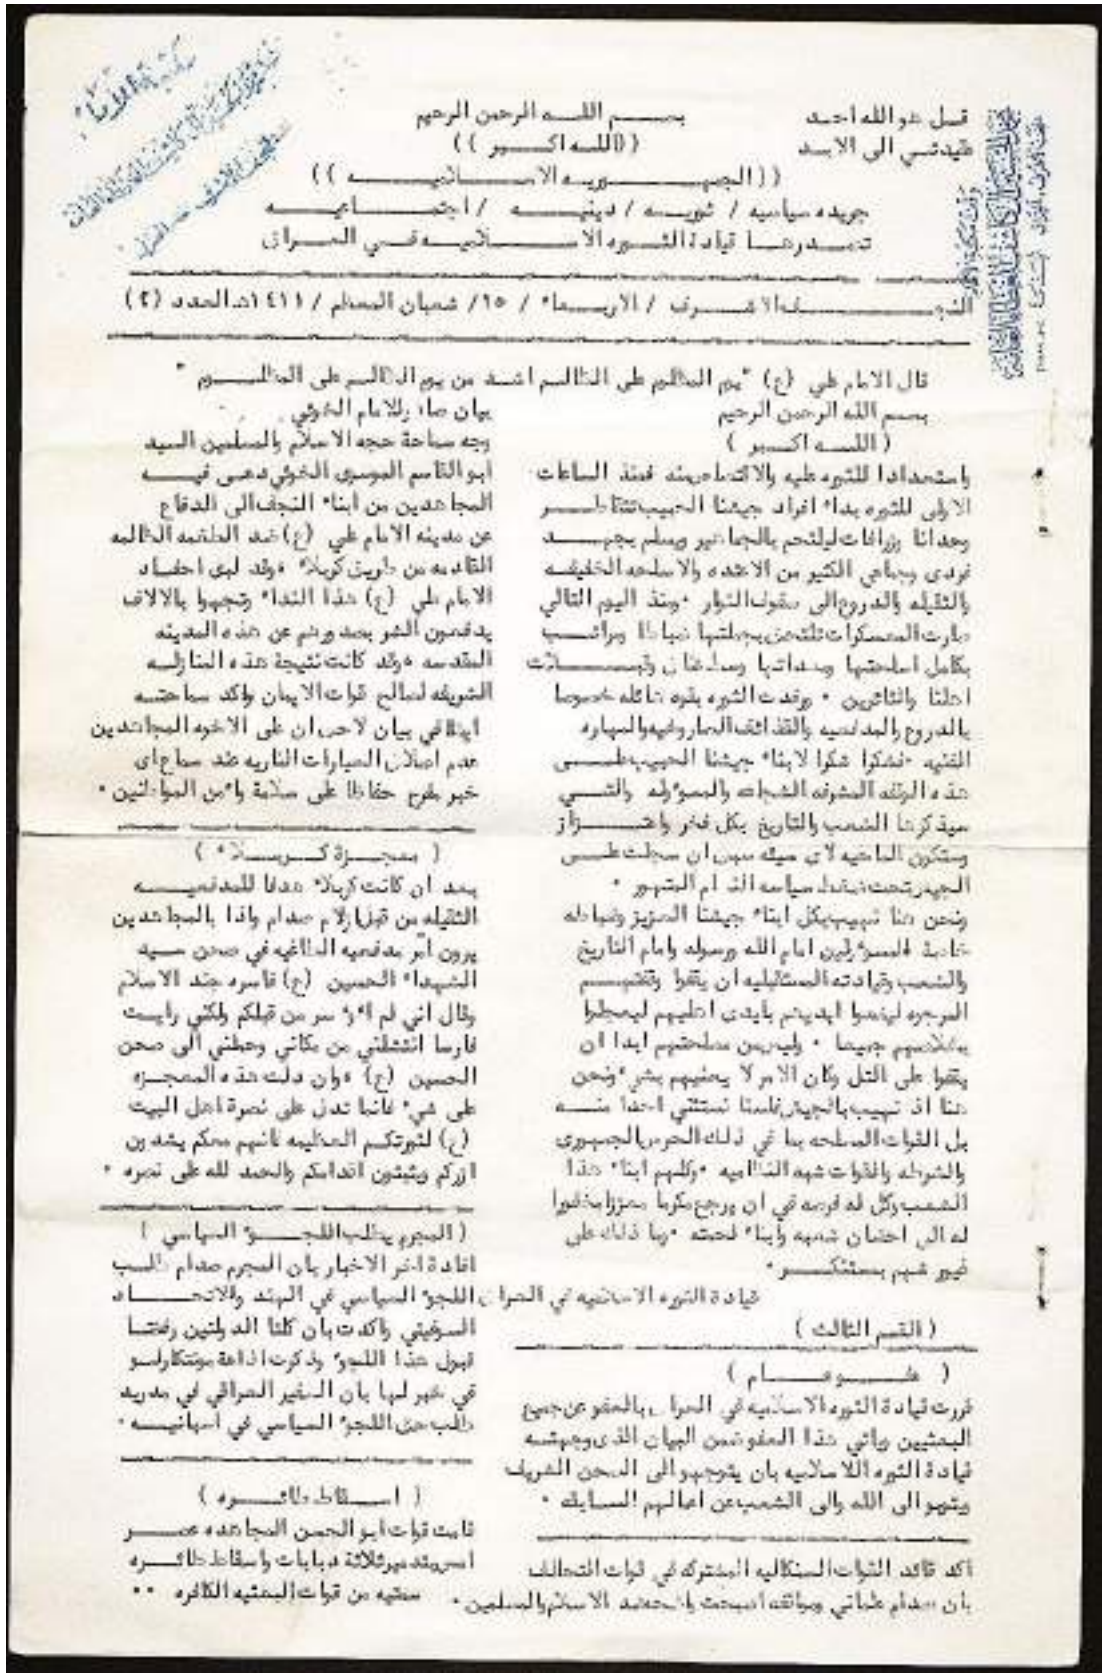 قل هو الله احد
عقيدتي الى الابد
بسم اللـه الرحمن الرحيم
((اللـه اكـبر))
((الجمهـوريـه الاسـلاميـه))
جريده سياسيه / ثوريـه / دينيـه / اجتمـاعيـه
تصـدرهـا قيادة الثـوره الاسـلاميـه فـي العـراق
النجـف الاشـرف / الاربـعاء / ١٥/ شعبان المعظم / ١٤١١هـ العدد (٢)
قال الامام علي (ع) "يوم المظلوم على الظالـم اشـد من يوم الظالـم على المظلـوم"
بسم الله الرحمن الرحيم
(اللـه اكـبر)
واستعدادا للثوره عليه والاقتصاص منه فمنذ الساعات
الاولى للثوره بداء افراد جيشنا الحبيب تتقاطـر
وحدانا وزرافات ليلتحم بالجماهير ويسلم بجهـد
فردي وجماعي الكثير من الاعتده والاسلحه الخفيفـه
والثقيله والدروع الى صفوف الثوار ومنذ اليوم التالي
صارت المعسكرات تلتحق بجملتها ضباطا ومراتـب
بكامل اسلحتها ومعداتها
اهلنا والثائرين . ورفدت الثوره بقوه هائله خصوصا
بالدروع والمدفعيه والقذائف الصاروخيه والمهاره
الفنيه فشكرا شكرا لابناء جيشنا الحبيب علـى
هذه الوقفه المشرفه الشجاعه والمسؤوله والتـي
سيذكرها الشعب والتاريخ بكل فخر واعتـزاز
وستكون الماحيه لاي سيئه سبق ان سجلت علـى
الجيش تحت ضغط سياسه النظام المتهور .
ونحن هنا نهيب بكل ابناء جيشنا العزيز وضباطه
خاصة المسؤولين امام الله ورسوله وامام التاريخ
والشعب وقيادته المستقبليه ان يقفوا وقفتهـم
المرجوه ليضعوا ايديهم بايدي اهليهم ليعجلوا
بخلاصهم جميعا . وليس من مصلحتهم ابدا ان
يقفوا على التل وكان الامر لا يعنيهم بشيء ونحن
هنا اذ نهيب بالجيش فلسنا نستثني احدا منـه
بل القوات المسلحه بما في ذلك الحرس الجمهوري
والشرطه والقوات شبه النظاميه وكلهم ابناء هذا
الشعب وكل له فرصه في ان يرجع مكرما معززا مغفورا
له الى احضان شعبه وابناء لحمته وما ذلك على
غيور شهم بمستنكـر .
قيادة الثوره الاسلاميه في العراق
(القسم الثالث)
(عفـو عـام)
قررت قيادة الثوره الاسلاميه في العراق بالعفو عن جميع
البعثيين وياتي هذا العفو ضمن البيان الذي وجهتـه
قيادة الثوره اللاسلاميه بان يتوجهو الى الصحن الشريف
ويتوبو الى الله والى الشعب عن اعمالهم السابقه .
اكد قائد القوات السنكاليه المشتركه في قوات التحالف
بان صدام علماني ومواقفه اصبحت واضحه ضد الاسلام والمسلمين .
بيان صادر للامام الخوئي
وجه سماحة حجه الاسلام والمسلمين السيد
ابو القاسم الموسوي الخوئي دعى فيـه
المجاهدين من ابناء النجف الى الدفاع
عن مدينه الامام علي (ع) ضد الطغمه الظالمه
القادمه من طريق كربلاء وقد لبى احفـاد
الامام علي (ع) هذا النداء وتجهوا بالالاف
يدفعون الشر بصدورهم عن هذه المدينه
المقدسه وقد كانت نتيجة هذه المنازلـه
الشريفه لصالح قوات الايمان واكد سماحتـه
ايضا في بيان لاحق ان على الاخوه المجاهدين
عدم اطلاق العيارات الناريه عند سماع اي
خبر مفرح حفاظا على سلامة وامن المواطنين .
(معجـزة كـربـلاء)
بعد ان كانت كربلاء هدفا للمدفعيـه
الثقيله من قبل ازلام صدام واذا بالمجاهدين
يرون امر مدفعيه الطاغيه في صحن سيد
الشهداء الحسين (ع) فاسره جند الاسلام
وقال اني لم اؤسر من قبلكم ولكني رايت
فارسا انتشلني من مكاني وحطني الى صحن
الحسين (ع) وان دلت هذه المعجـزه
على شيء فانما تدل على نصرة اهل البيت
(ع) لثورتكم العظيمه فانهم معكم يشدون
ازركم ويثبتون اقدامكم والحمد لله على نصره .
(المجرم يطلب اللجـوء السياسي)
افادة اخر الاخبار بان المجرم صدام طلـب
اللجوء السياسي في الهند والاتحـاد
السوفيتي واكدت بان كلتا الدولتين رفضتا
قبول هذا اللجوء وذكرت اذاعة مونتكارلـو
في خبر لها بان السفير العراقي في مدريد
طلب حق اللجوء السياسي في اسبانيـه .
(اسـقاط طائـره)
قامت قوات ابو الحسن المجاهده عصـر
امس بتدمير ثلاثة دبابات واسقاط طائـره
سمتيه من قوات البعثيه الكافره ..